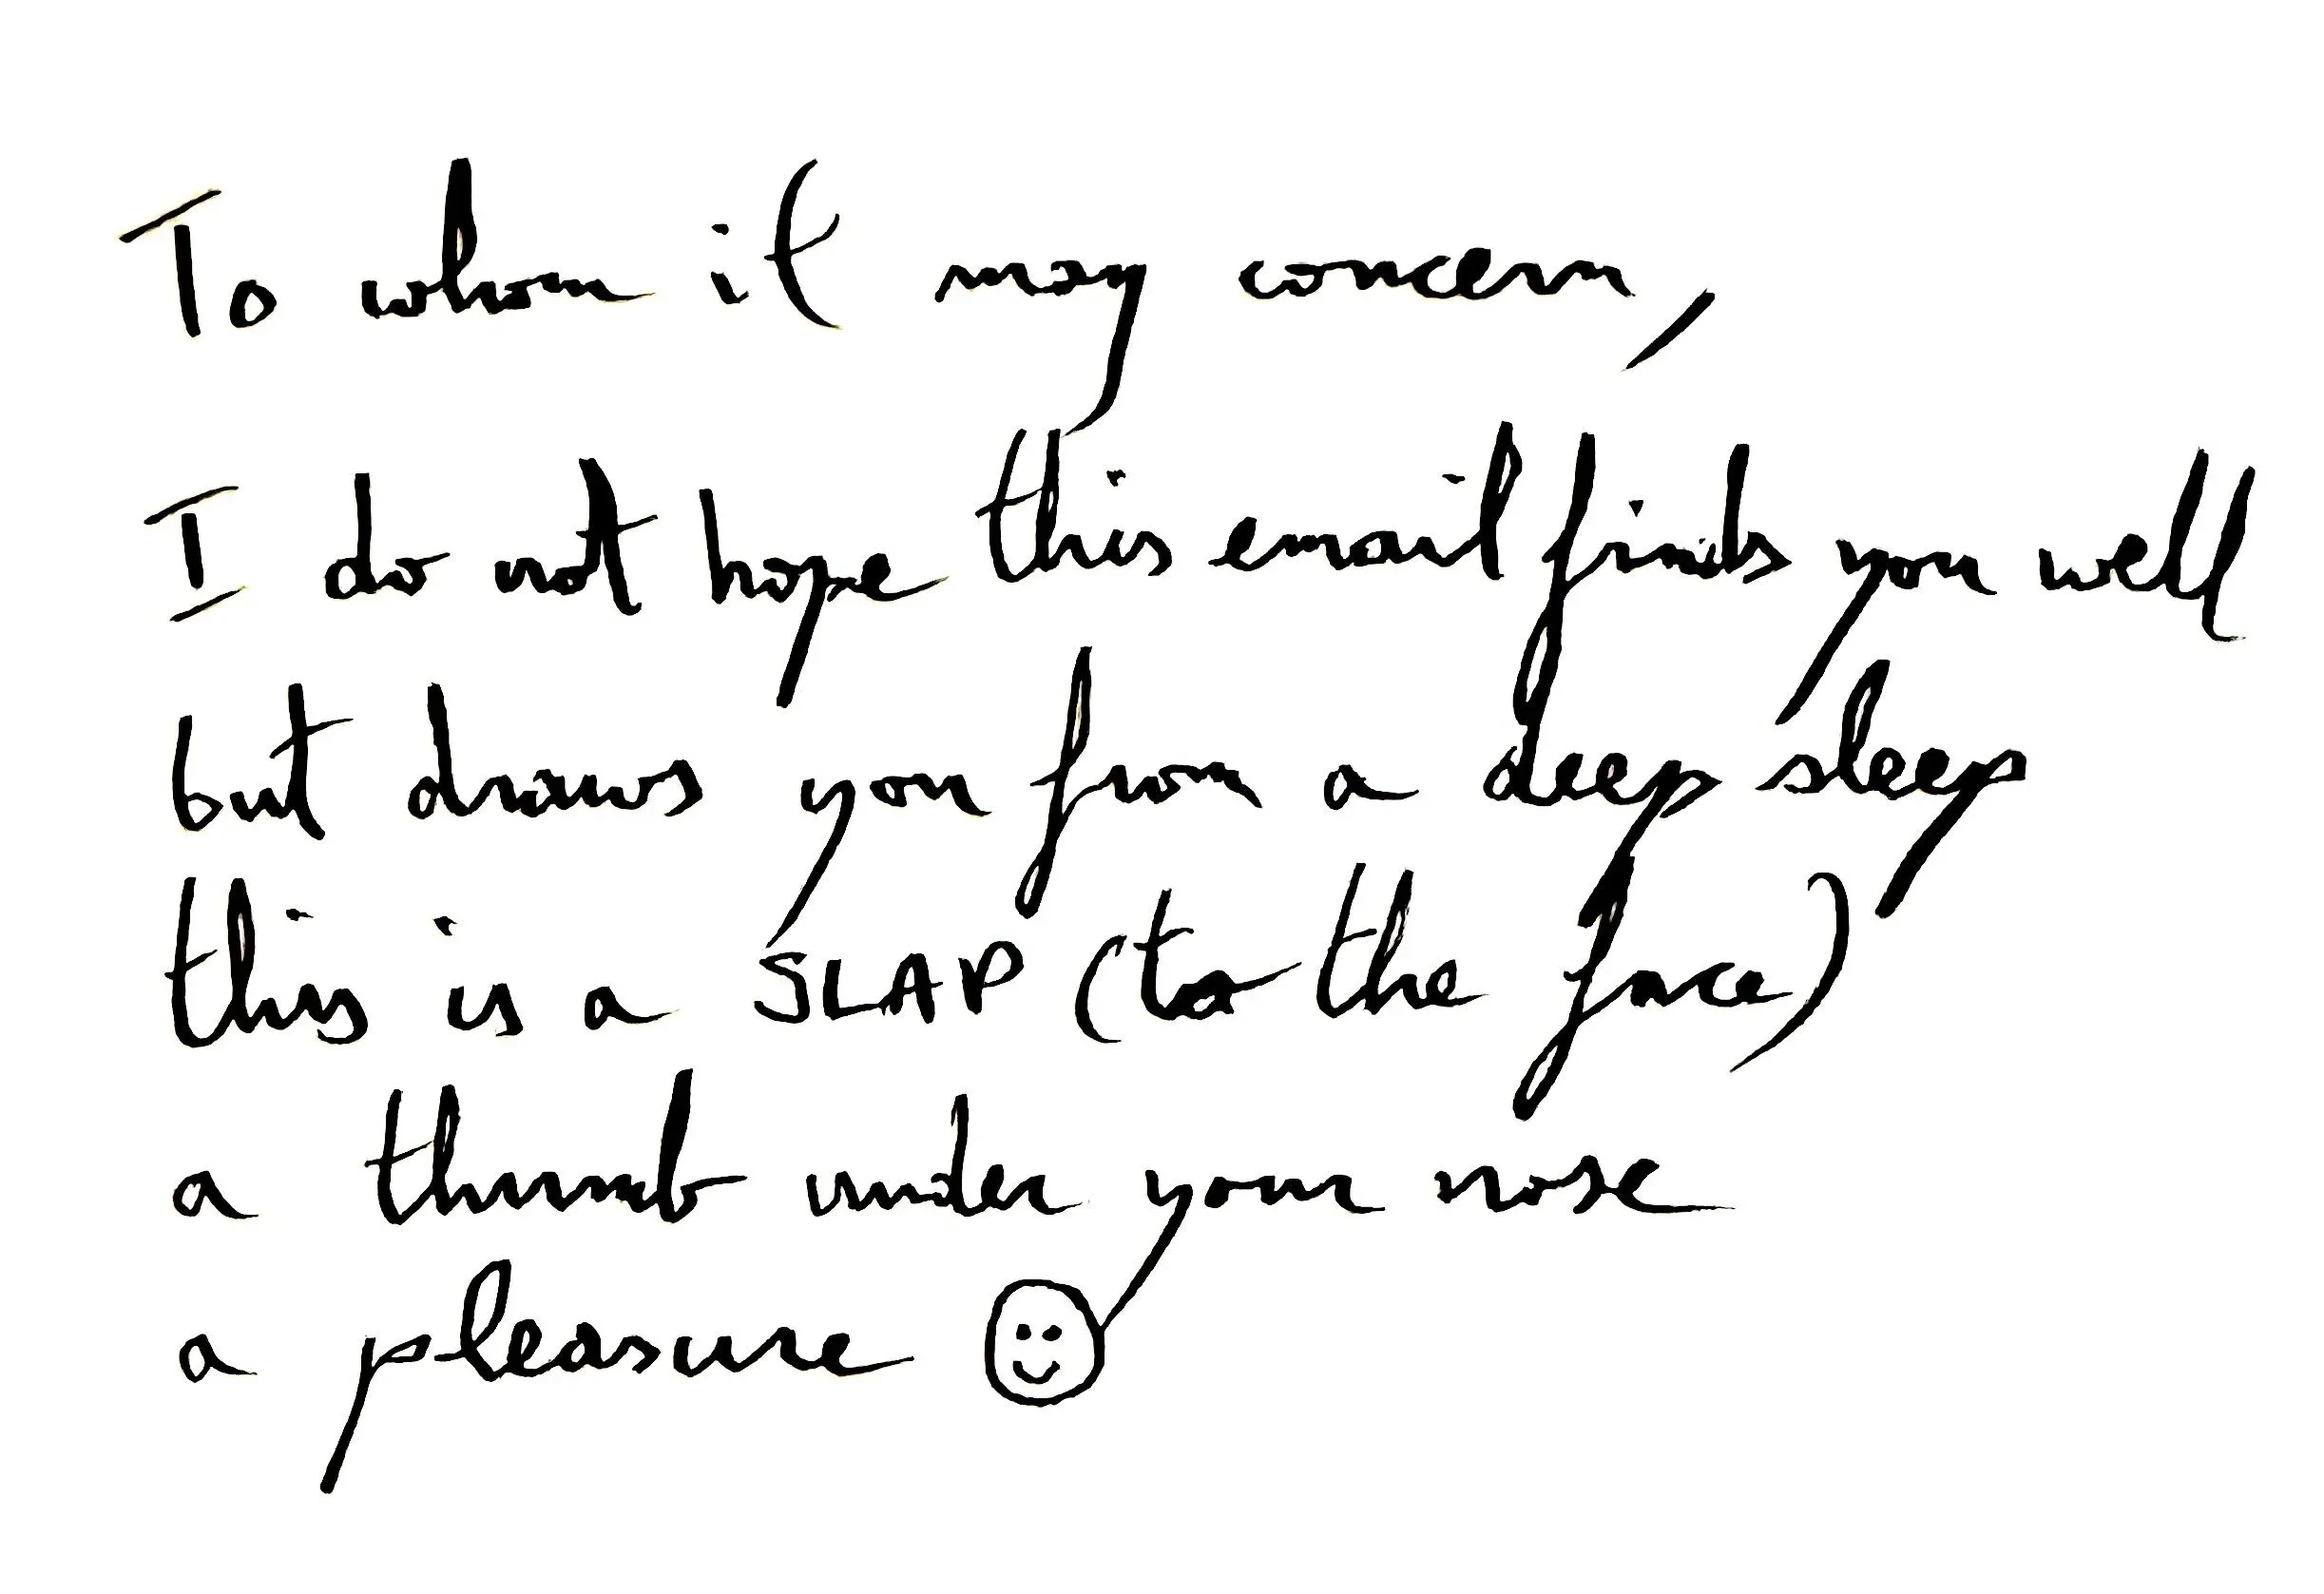 To whom it may concern,
I do not hope this email finds you well
but draws you from a deep sleep
this is a SLAP (to the face)
a thumb under your nose
a pleasure